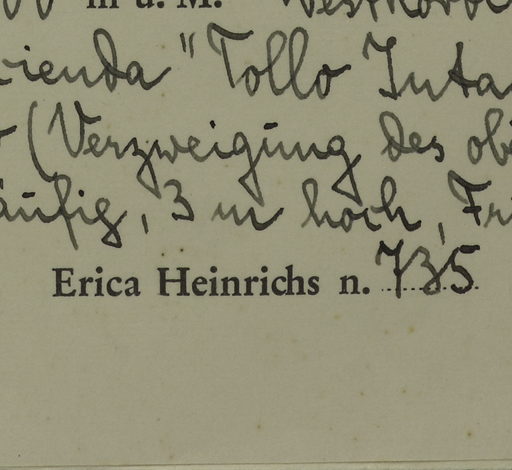 m ü. M. Westkord
cienda "Tollo Inta
(Verzweigung des ob
äufig, 3 m hoch, Fr
Erica Heinrichs n. 735